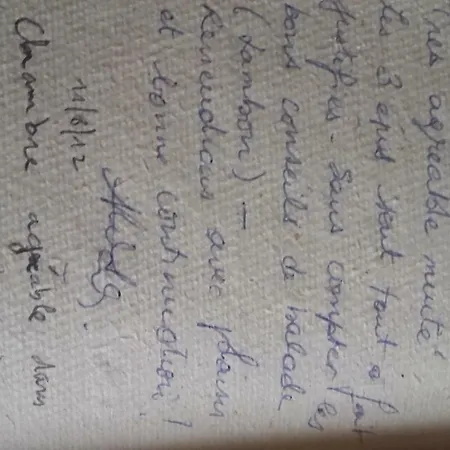 Très agréable nuité
Les 3 épis sont tout à fait
justifiés - Sans compter les
bons conseils de balade
(Lambon) -
Reviendrons avec plaisir
et bonne continuation !
11/8/12
Chambre agréable dans